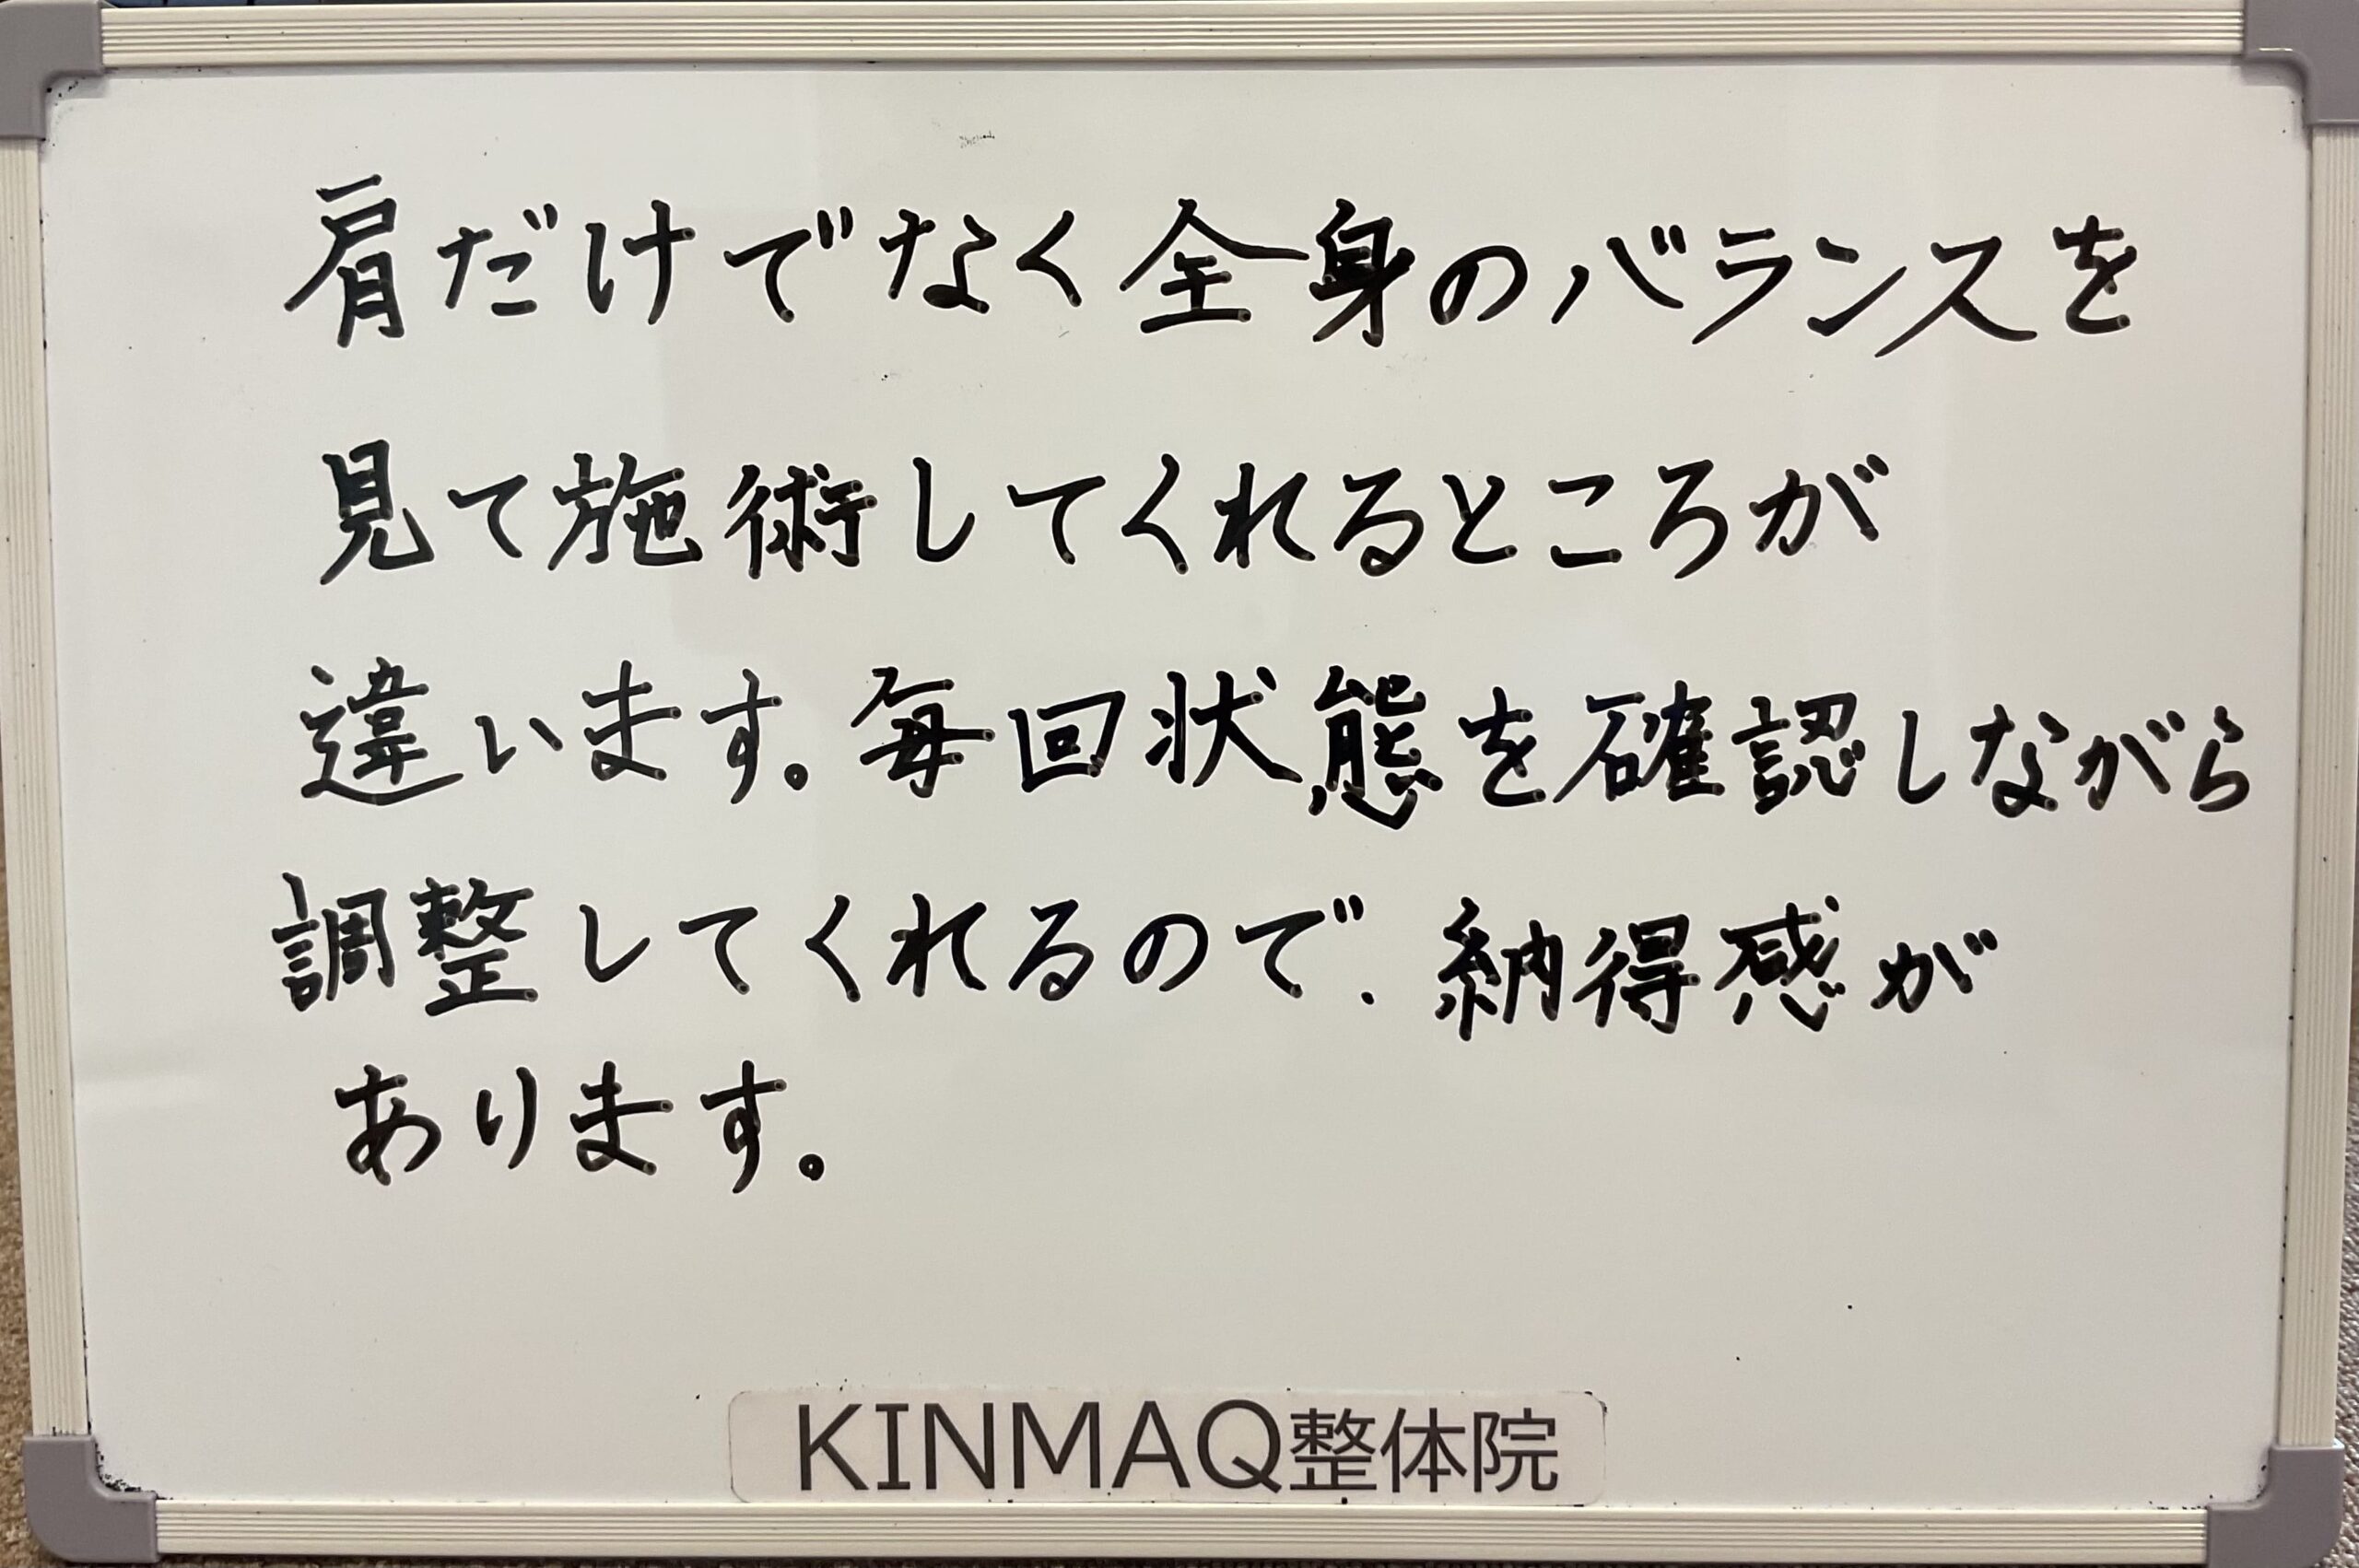 肩だけでなく全身のバランスを
見て施術してくれるところが
違います。毎回状態を確認しながら
調整してくれるので、納得感が
あります。
KINMAQ整体院